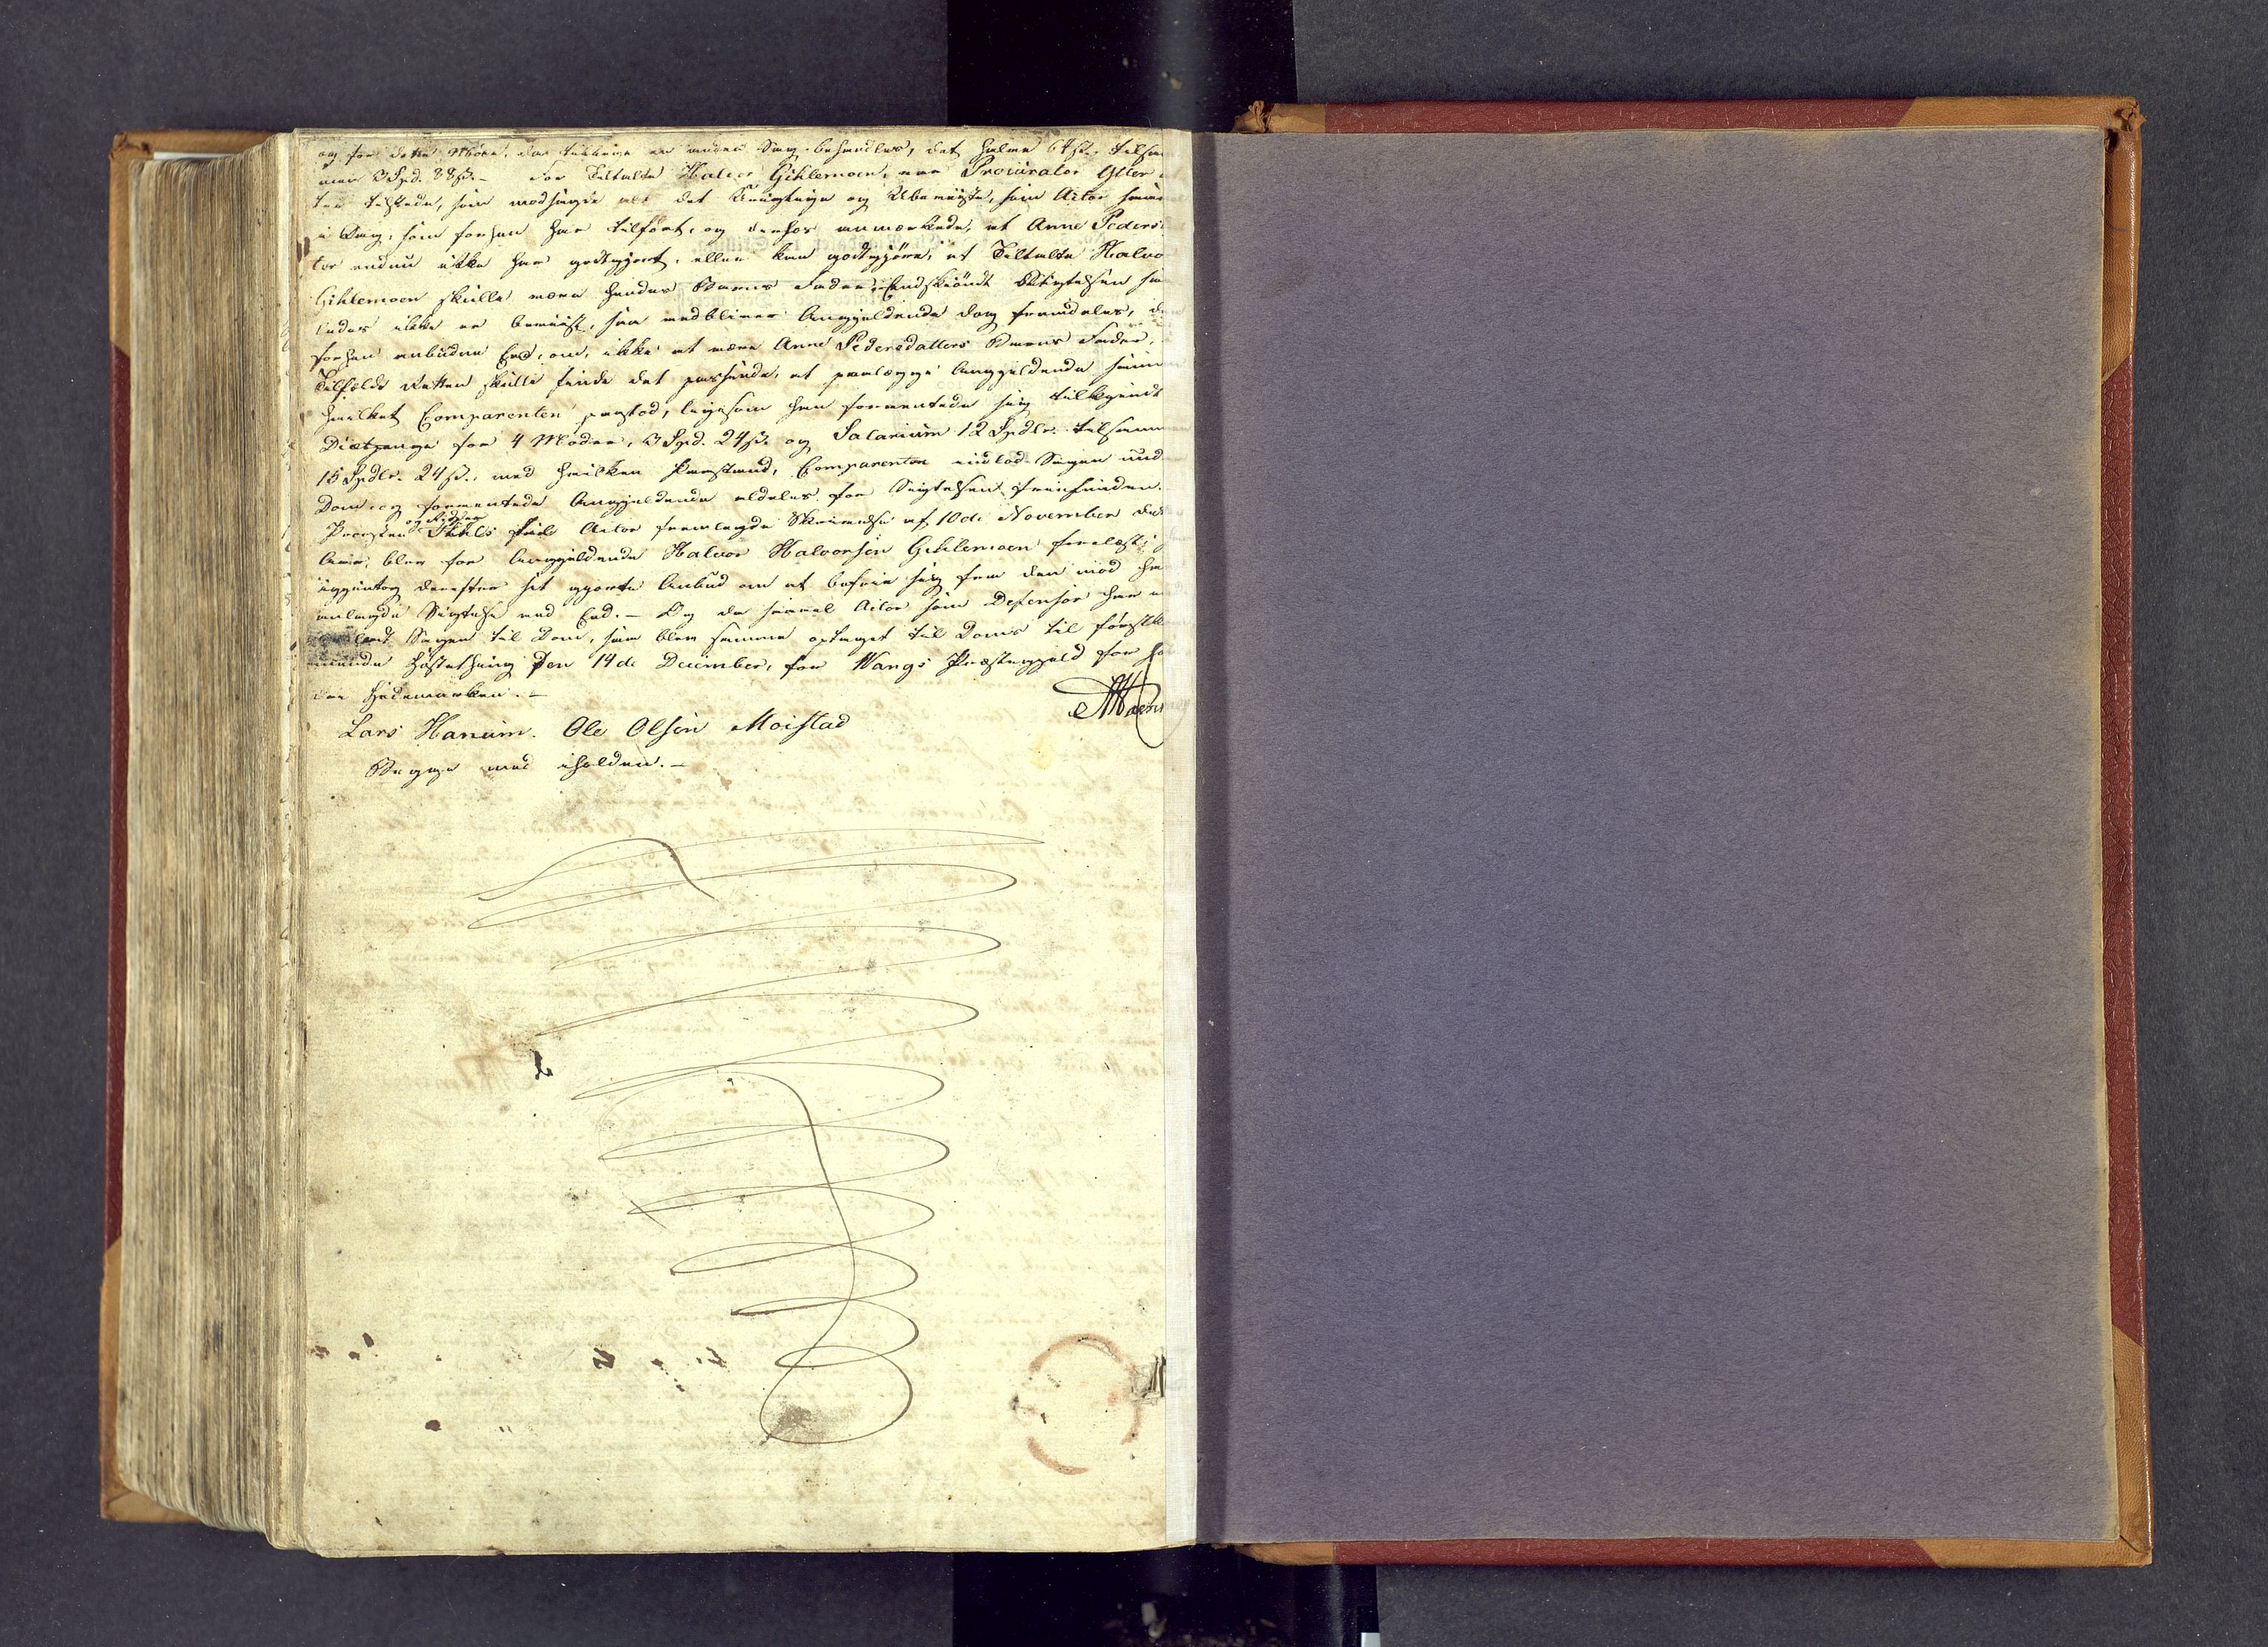 og for dette Møde, da tillige en anden Sag behandles, det halve 64 ß., tilsa
men 3 Spd. 88 ß. – For Tiltalte Halvor Gihlemoen, var Procurator
tilstede, som modsagde alt det Urigtige og Ubeviiste, som Actor saavel
i Dag, som forhen har tilført, og derhos anmærkede, at Anne Peders
ter endnu ikke har godtgjort, eller kan godtgjøre, at Tiltalte Halvo
Gihlemoen skulle være hendes Barns Fader. Endskiøndt Sigtelsen saa
ledes ikke er beviist, saa vedbliver Angjeldende dog fremdeles, d
forhen anbudne Eed, om, ikke at være Anne Pedersdatters Barns Fader,
Tilfælde Retten skulle finde det passende, at paalægge Angjeldende samm
hvilket Comparenten paastod, ligesom han formeentede sig tilkjendt
Diætpenge for 4 Møder, 3 Spd. 24 ß. og Salarium 12 Spdlr. tilsamm
15 Spdlr. 24 ß., med hvilken Paastand, Comparenten indlod Sagen und
Dom, og formeentede Angjeldende aldeles for Sigtelsen friefunden.
og Ridder
Præsten Stihls fra Actor fremlagde Skrivelse af 10de November d
Aar, blev for Angjeldende Halvor Halvorsen Gihlemoen forelæst,
igjentog derefter sit gjorte Anbud om at befrie sig fra den mod ha
anlagde Sigtelse ved Eed. – Og da saavel Actor som Defensor har
Sagen til Dom, saa blev samme optaget til Doms til førstk
mende Høstething den 14de December, for Wangs Præstegjeld paa H
der Hedemarken. –
Lars Hanum. Ole Olsen Moistad
Begge med iholden. –